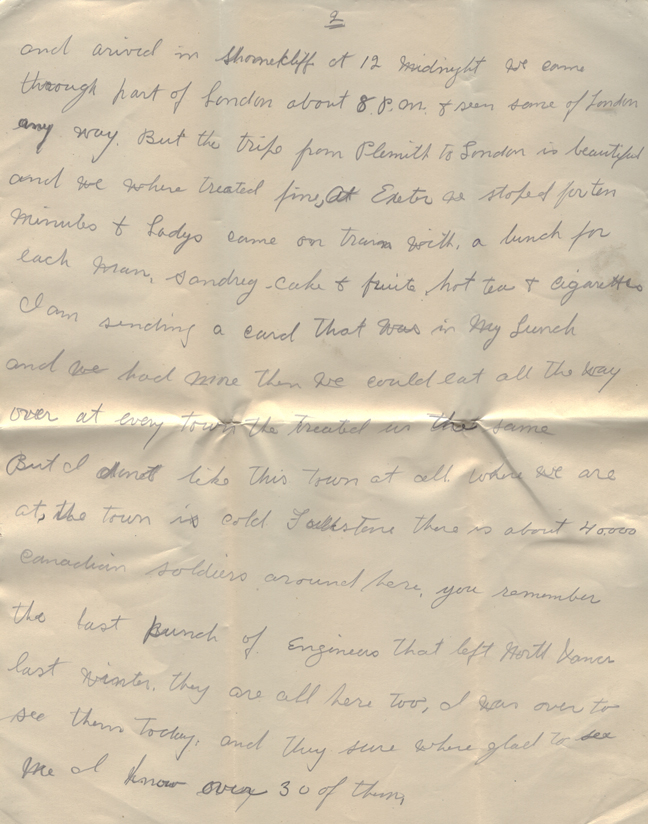 2
and arived in Shornekliff at 12 Midnight We came
through part of London about 8 P.M. & seen some of London
any way. But the tripe from Plemith to London is beautiful
and we where treated fine, At Exeter we stoped for ten
Minutes & Ladys came on train with, a lunch for
each Man, Sandreg - cake & fruits hot tea & Cigarettes
I am sending a card that Was in My Lunch
and we had More then We could eat all the way
over at every town the treated us the same
But I donot like this Town at all where We are
at, the town is cold Folkstone there is about 40.000
Canadian soldiers around here, you remember
the last Bunch of Engineers that left North Vancr
last Winter, they are all here too, I was over to
see them Today, and they sure where glad to see
Me I know over 30 of them,